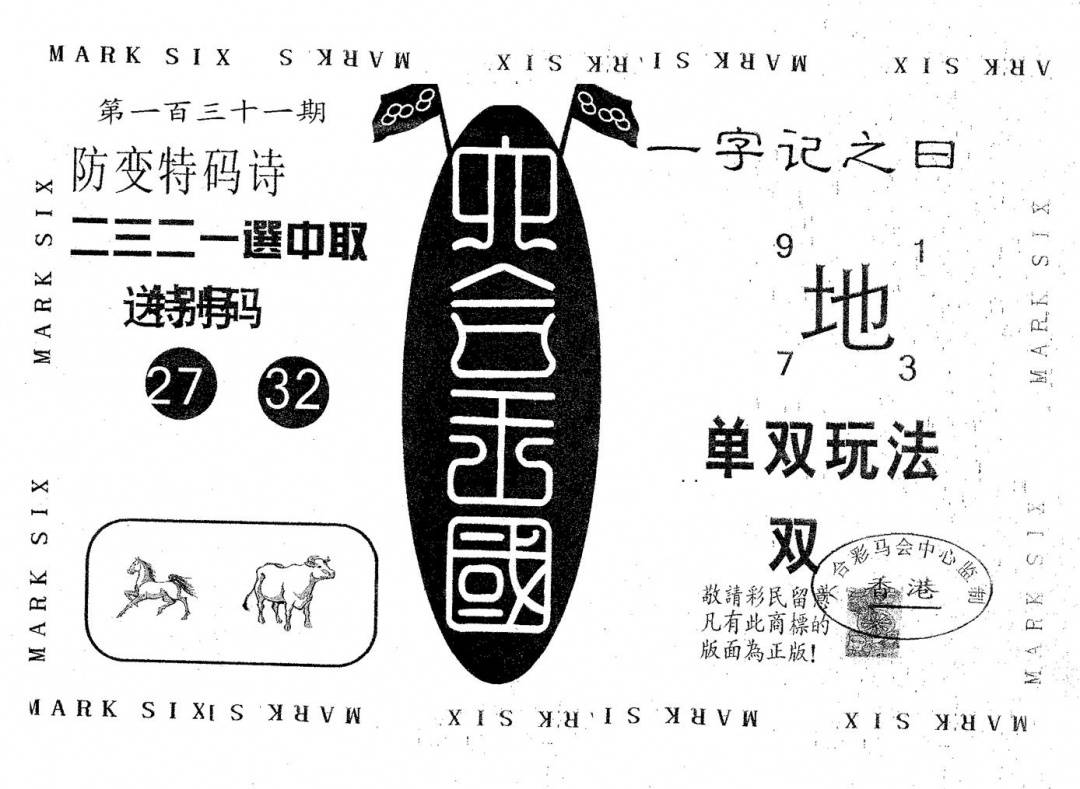 MARK SIX
第一百三十一期
防变特码诗
二三二一選中取
送特别号码
27 32
六合王國
一字记之曰
9 1
地
7 3
单双玩法
双
六合彩马会中心监制
香港
敬請彩民留意
凡有此商標的
版面為正版!
MARK SIX
MARK SIX
MARK SIX
MARK SIX
MARK SIX
MARK SIX
MARK SIX
MARK SIX